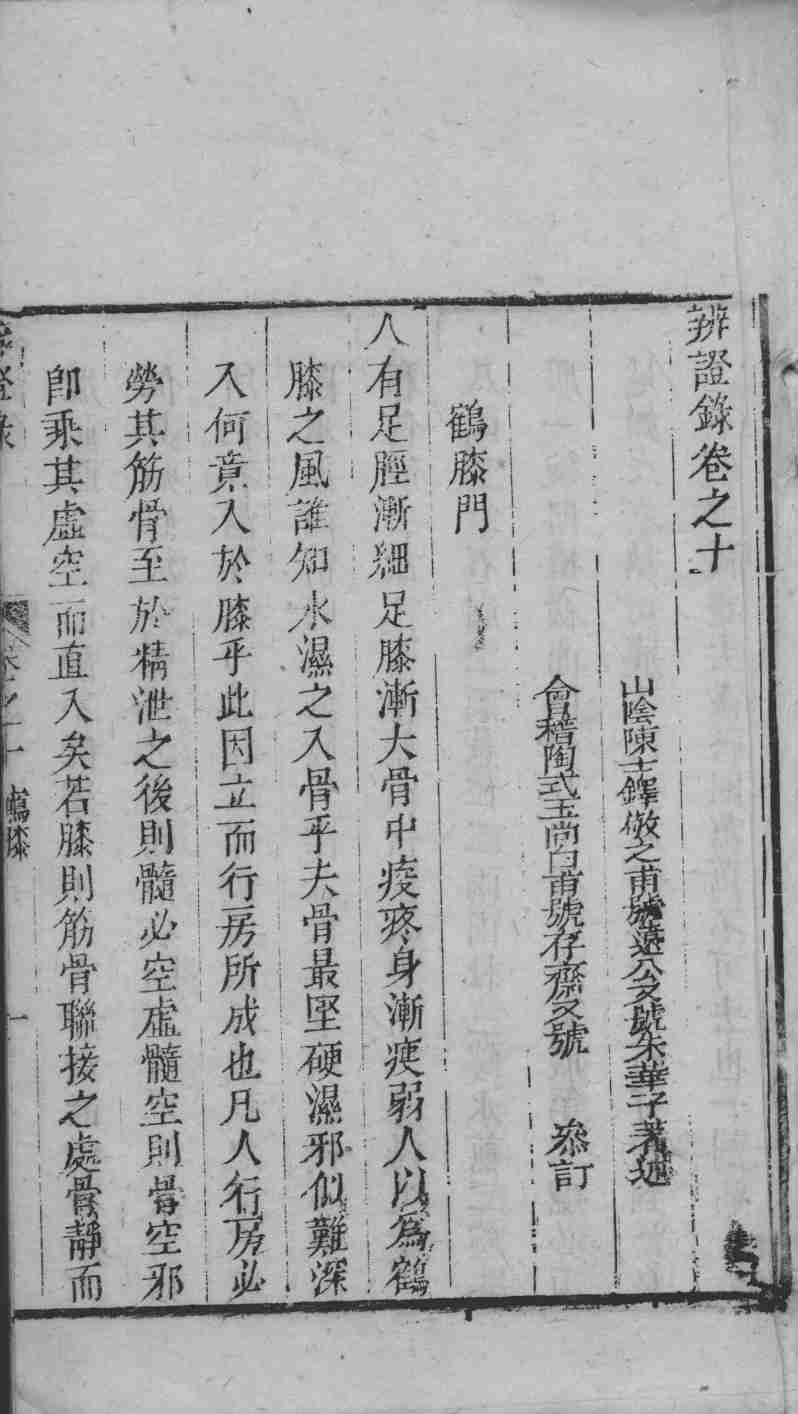 辨證錄卷之十
山陰陳士鐸敬之甫號遠公又號朱華子著述
會稽陶式玉尚白甫號存齋又號 叅訂
鶴膝門
人有足脛漸細足膝漸大骨中痠疼身漸痩弱人以爲鶴
膝之風誰知水濕之入骨乎夫骨最堅硬濕邪似難深
入何竟入於膝乎此因立而行房所成也凡人行房必
勞其筋骨至於精泄之後則髓必空虛髓空則骨空邪
卽乘其虛空而直入矣若膝則筋骨聯接之處骨靜而
鶴膝 一